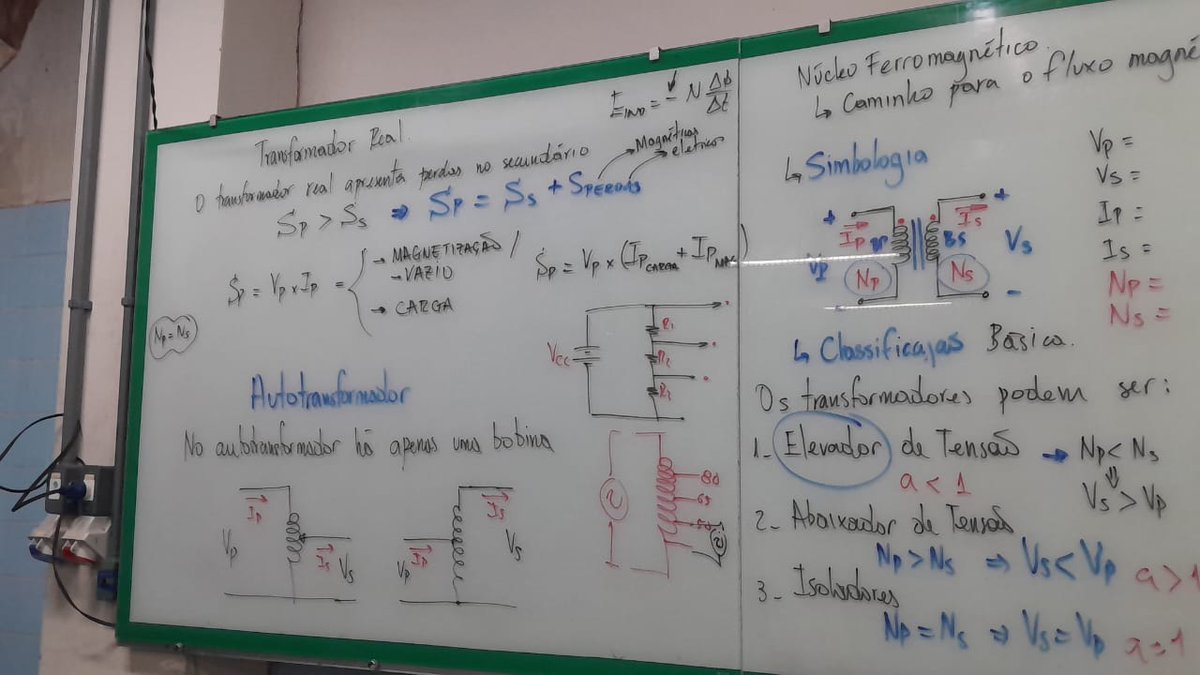 Transformador Real.
E IND = - N ΔΦ/Δt
O transformador real apresenta perdas no secundário
Magnéticas
elétricas
Sp > Ss ⇒ Sp = Ss + SPERDAS
Sp = Vp x Ip =
→ MAGNETIZAÇÃO /
→ VAZIO
→ CARGA
Sp = Vp x (Ip CARGA + Ip MAG)
Np = Ns
Vcc
R1
R2
R3
Autotransformador
No autotransformador há apenas uma bobina
Ip
Vp
Is
Vs
Is
Ip
Vp
Vs
Núcleo Ferromagnético.
↳ Caminho para o fluxo magné
↳ Simbologia
+
+
Ip
Is
Vp
BP
BS
Vs
Np
Ns
-
-
Vp =
Vs =
Ip =
Is =
Np =
Ns =
↳ Classificaças Básica.
Os transformadores podem ser:
1- Elevador de Tensão → Np < Ns
a < 1
⇓
Vs > Vp
2- Abaixador de Tensão
Np > Ns ⇒ Vs < Vp a > 1
3- Isoladores
Np = Ns ⇒ Vs = Vp a = 1